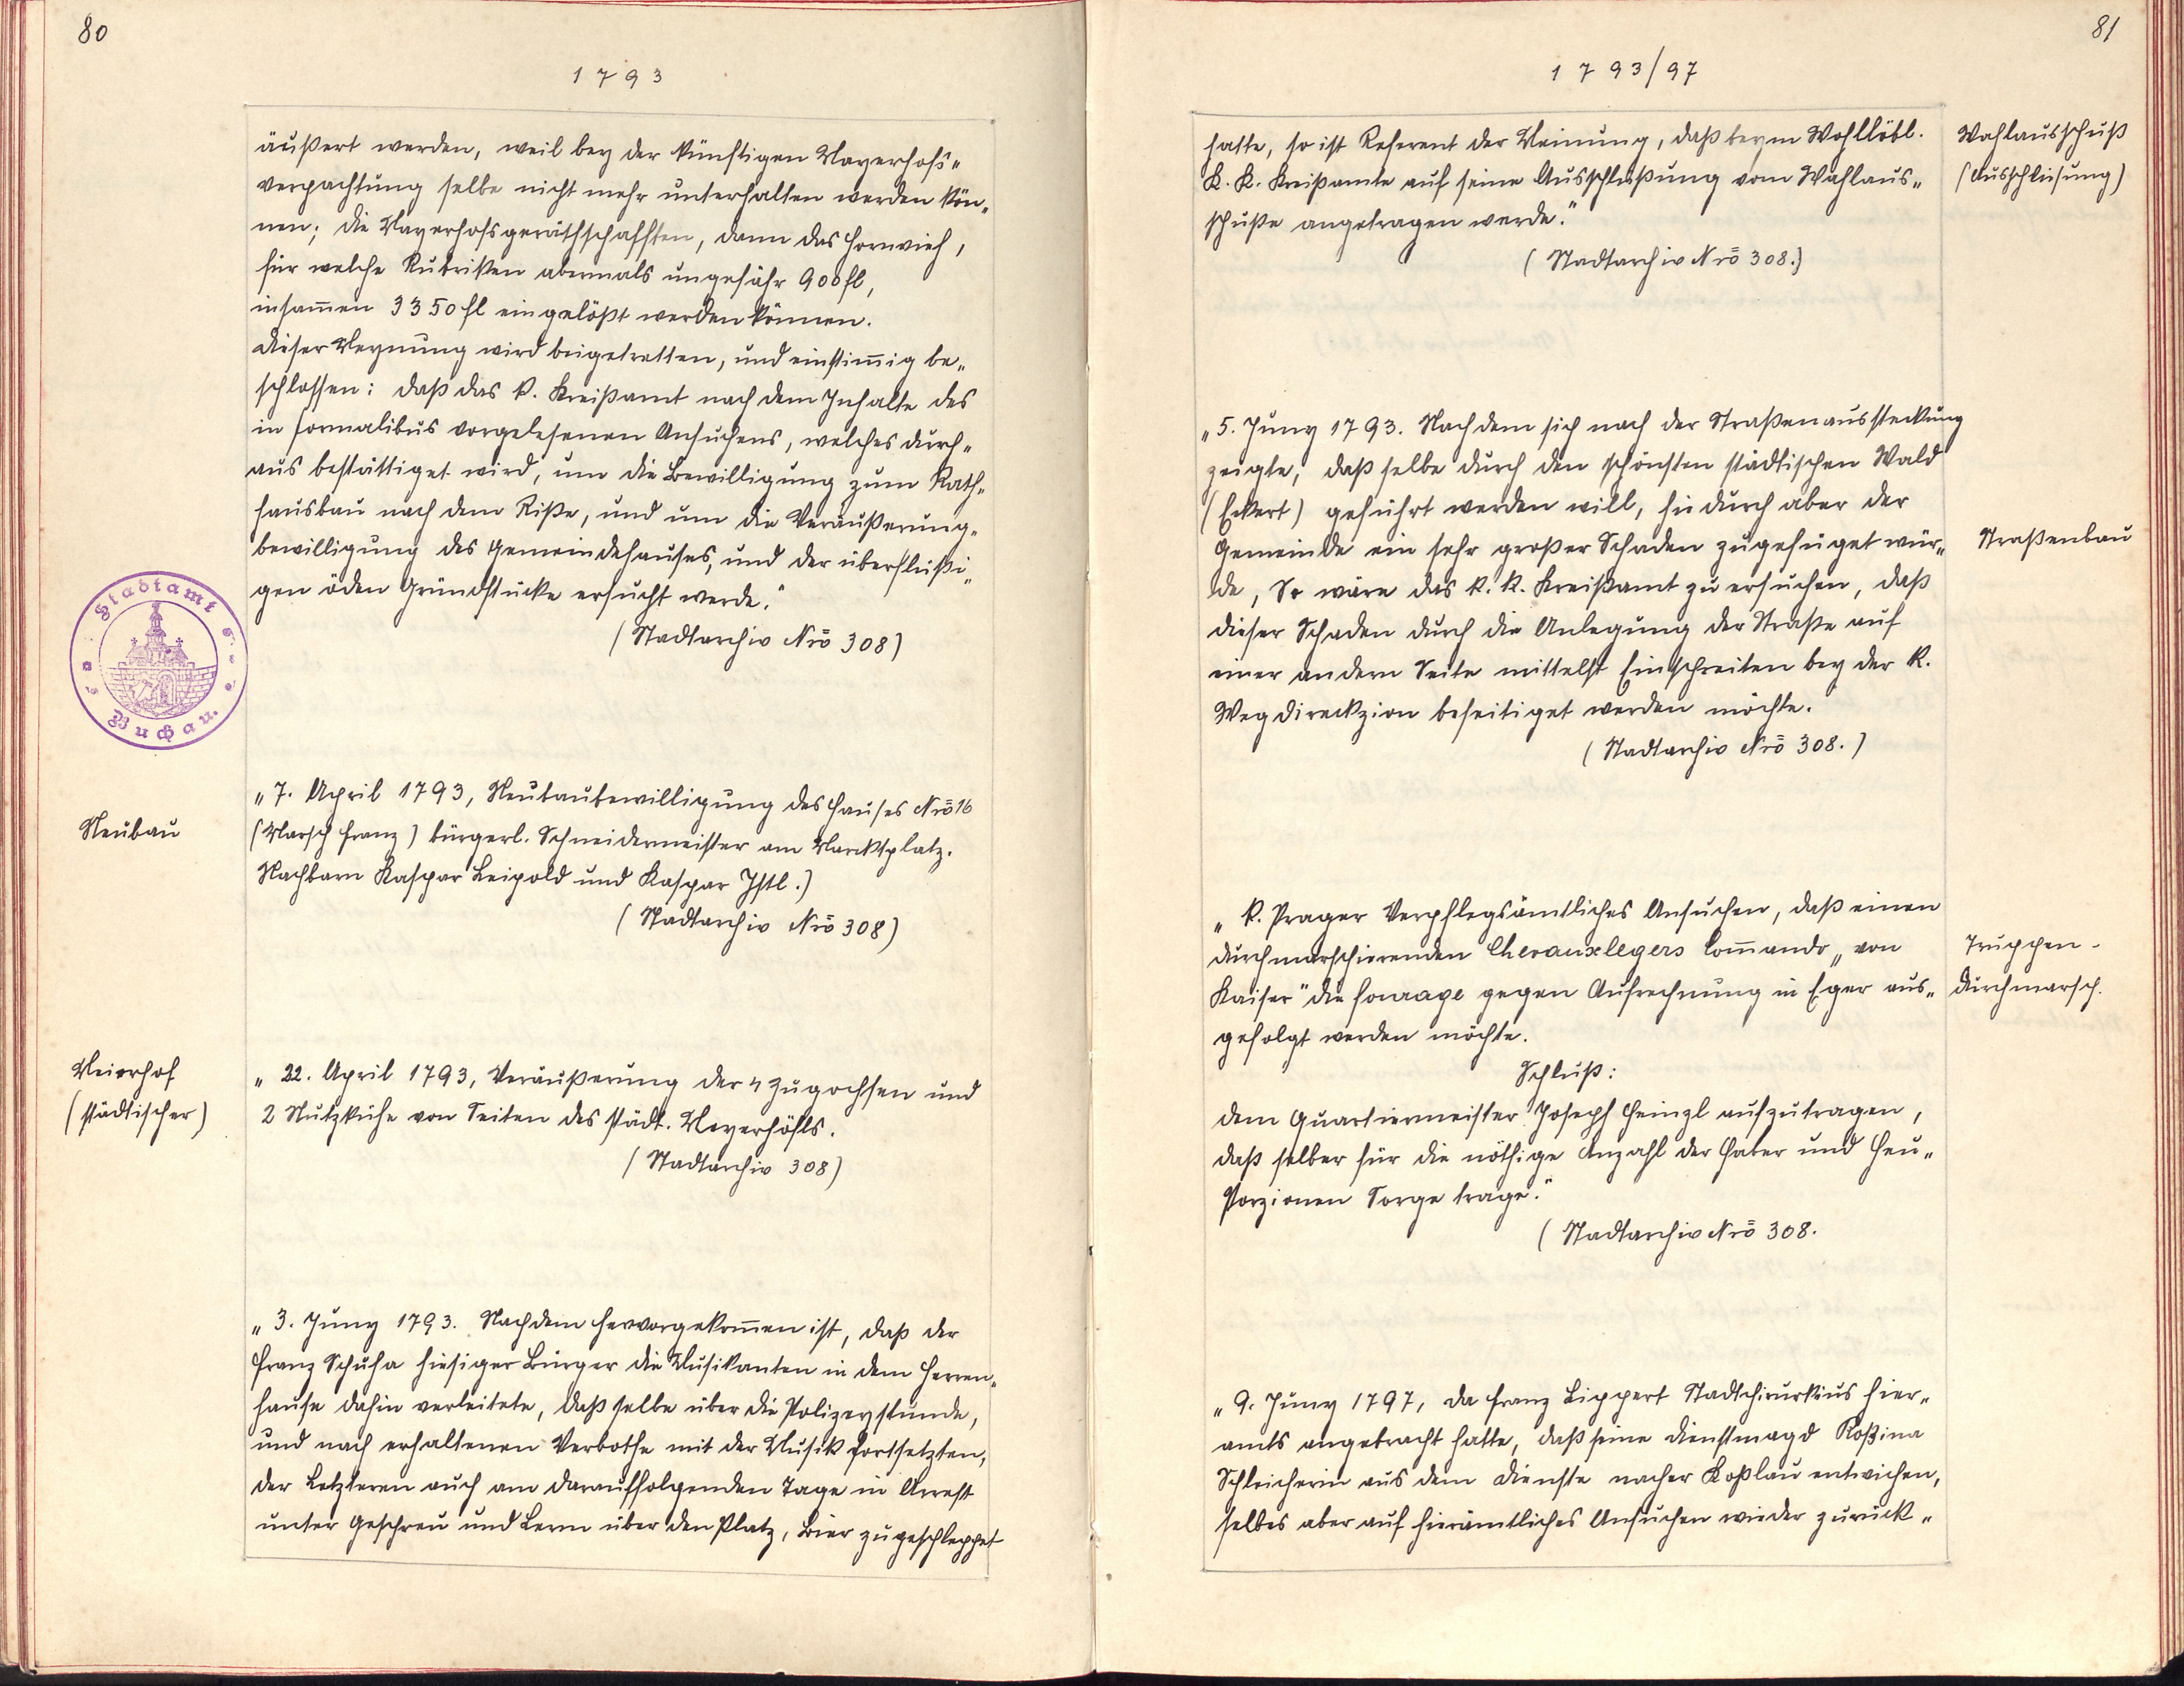 80
1793
äußert werden, weil bey der künftigen Mayerhofs„
verpachtung selbe nicht mehr unterhalten werden kön„
nen; die Mayerhofsgeräthschafften, dann das Hornvieh,
für welche Rubriken abermals ungefähr 900 fl,
insam̄en 3350 fl eingelößt werden können.
Dieser Meynung wird beigetretten, und einstim̄ig be„
schlossen: daß das k. Kreißamt nach dem Inhalte des
in formalibus vorgelesenen Ansuchens, welches durch„
aus bestättiget wird, um die Bewilligung zum Rath„
hausbau nach dem Riße, und um die Veräußerung„
bewilligung des Gemeindehauses, und der überflüßi„
gen öden Gründstücke ersucht werde."
(Stadtarchiv Nrō 308)
Stadtamt
Buchau.
Neubau
„7. April 1793, Neubaubewilligung des Hauses Nrō 16
(Marsch Franz) bürgerl. Schneidermeister am Marcktplatz.
Nachbarn Kaspar Leipold und Kaspar Istl.)
(Stadtarchiv Nrō 308)
Meierhof
(städtischer)
„22. April 1793, Veräußerung der 4 Zugochsen und
2 Nutzkühe von Seiten des städt. Meyerhöfls.
(Stadtarchiv 308)
„3. Juny 1793. Nachdem hervorgekom̄en ist, daß der
Franz Schuha hiesiger Bürger die Musikanten in dem Herren„
hause dahin verleitete, daß selbe über die Polizeystunde,
und nach erhaltenen Verbothe mit der Musik fortsetzten,
der Letzteren auch am darauffolgenden Tage in Arrest
unter Geschreu und Lerm über den Platz, Bier zugeschleppet
81
1793/97
hatte, so ist Referent der Meinung, daß beym Wohllöbl.
K. K. Kreißamte auf seine Ausschlüßung vom Wahlaus„
schuße angetragen werde."
(Stadtarchiv Nrō 308.)
Wahlausschuß
(Ausschliesung)
„5. Juny 1793. Nachdem sich nach der Straßenaussteckung
zeigte, daß selbe durch den schönsten städtischen Wald
(Eckert) geführt werden will, hiedurch aber der
Gemeinde ein sehr großer Schaden zugefüget wür„
de, So wäre das k. k. Kreißamt zu ersuchen, daß
dieser Schaden durch die Anlegung der Straße auf
einer andern Seite mittelst Einschreiten bey der K.
Wegdireckzion beseitiget werden möchte.
(Stadtarchiv Nrō 308.)
Straßenbau
„K. Prager Verpflegsämtliches Ansuchen, daß einen
durchmarschierenden Chevauxlegers Com̄ando „von
Kaiser" die Fourage gegen Aufrechnung in Eger aus„
gefolgt werden möchte.
Truppen-
durchmarsch.
Schluß:
dem Quartiermeister Joseph Heinzl aufzutragen,
daß selber für die nöthige Anzahl der Haber und Heu„
Porzionen Sorge trage."
(Stadtarchiv Nrō 308.
„9. Juny 1797, da Franz Lippert Stadtchirurkus hier„
amts angebracht hatte, daß seine Dienstmagd Roßina
Schleicherin aus dem Dienste nacher Koßlau entwichen,
selbes aber auf hierämtliches Ansuchen wieder zurück„